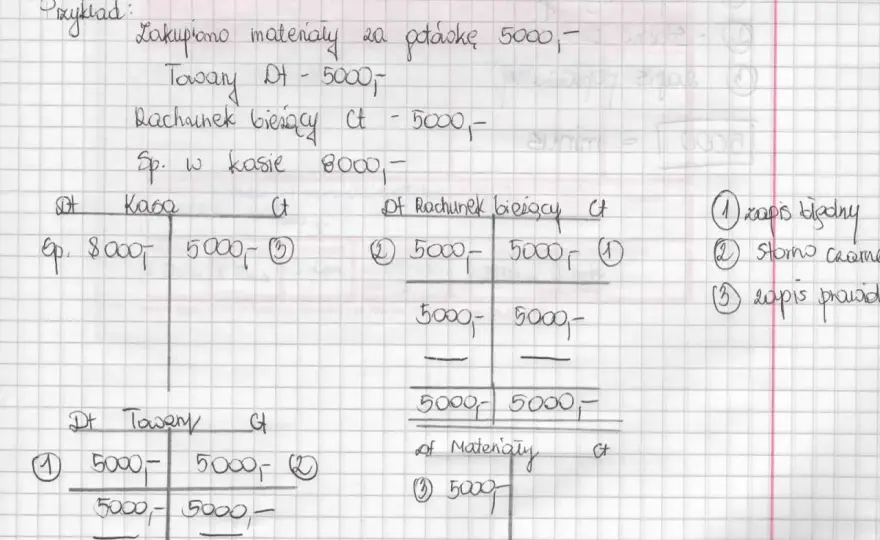 Przykład:
Zakupiono materiały za gotówkę 5000,-
Towary Dt - 5000,-
Rachunek bieżący Ct - 5000,-
Sp. w kasie 8000,-
Dt Kasa Ct
Sp. 8000,- 5000,- ③
Dt Rachunek bieżący Ct
② 5000,- 5000,- ①
5000,- 5000,-
5000,- 5000,-
① zapis błędny
② storno czarne
③ zapis prawid
Dt Towary Ct
① 5000,- 5000,- ②
5000,- 5000,-
Dt Materiały Ct
③ 5000,-